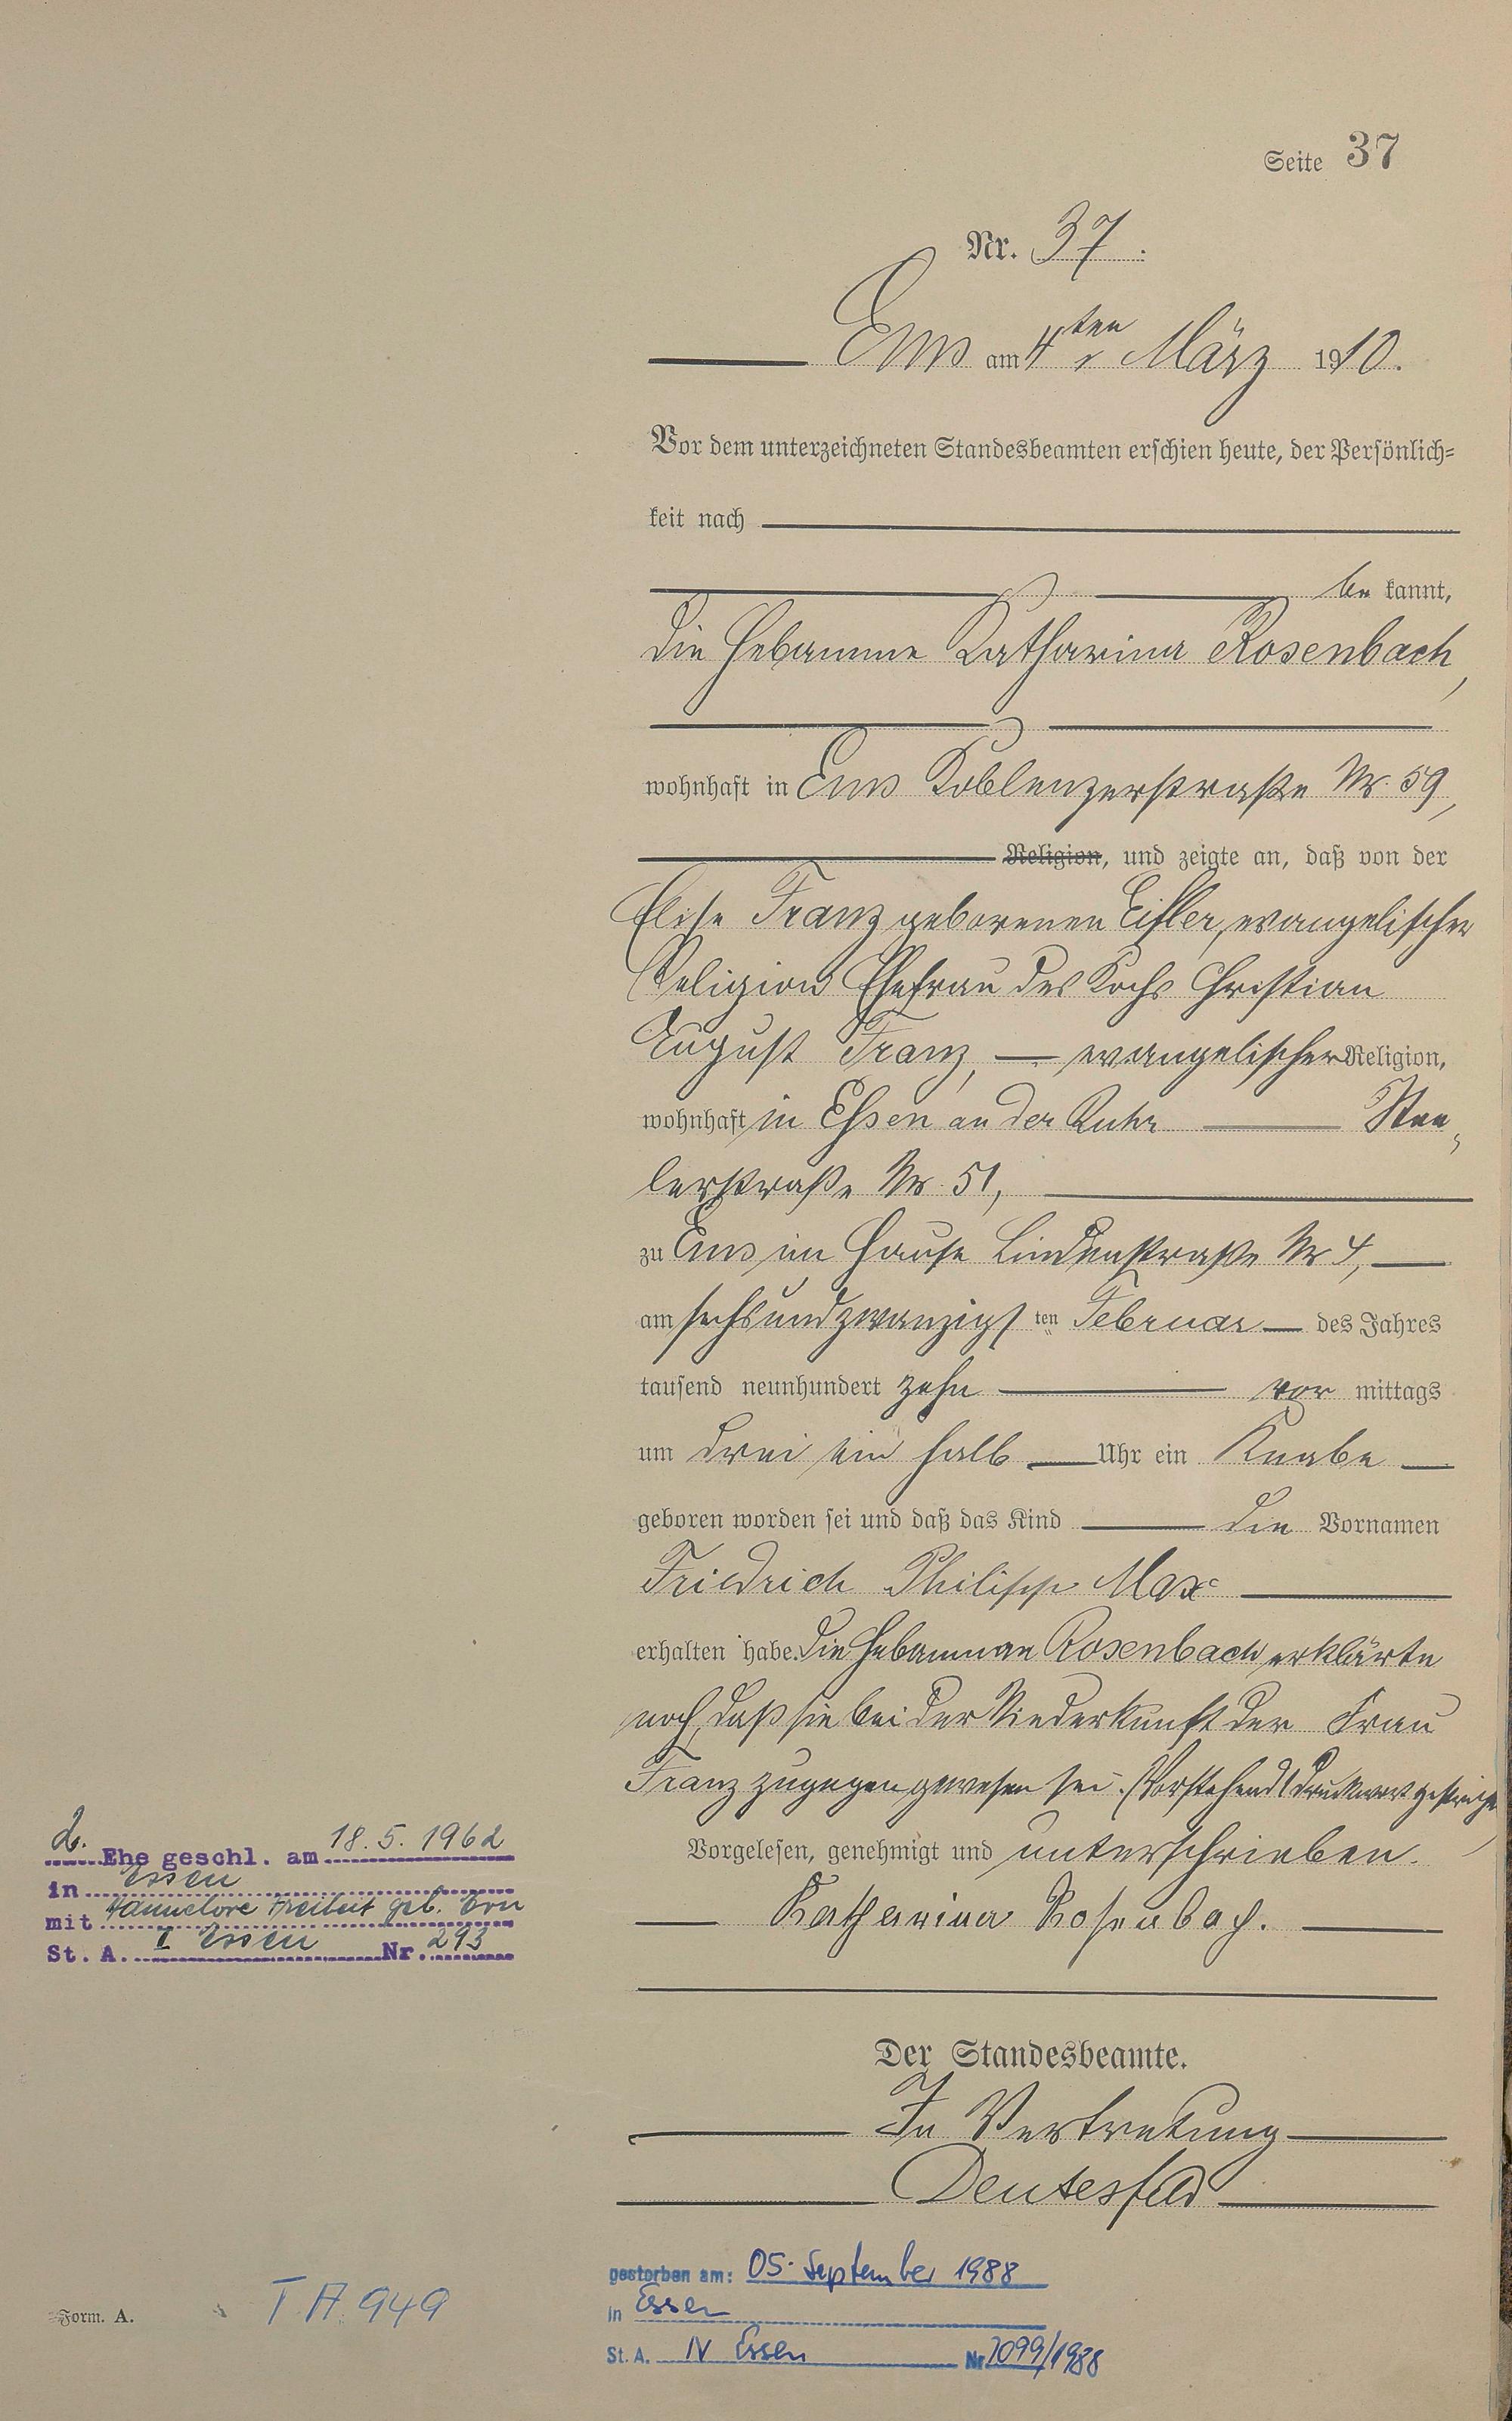 Seite 37
Nr. 37.
Ems am 4ten März 1910.
Vor dem unterzeichneten Standesbeamten erschien heute, der Persönlich=
keit nach
be kannt,
die Hebamme Katharina Rosenbach,
wohnhaft in Ems Koblenzerstraße Nr. 59,
Religion, und zeigte an, daß von der
Elise Franz geborenen Eifler, evangelischer
Religion Ehefrau des Kochs Christian
August Franz, evangelischer Religion,
wohnhaft in Essen an der Ruhr Stee,
lerstraße Nr. 51,
zu Ems im Hause Lindenstraße Nr 4,
am sechsundzwanzigsten Februar des Jahres
tausend neunhundert zehn vor mittags
um drei ein halb Uhr ein Knabe
geboren worden sei und daß das Kind die Vornamen
Friedrich Philipp Max
erhalten habe. Die Hebamme Rosenbach erklärte
noch, daß sie bei der Niederkunft der Frau
Franz zugegen gewesen sei. (Vorstehend 1 Druckwort gestrichen
Vorgelesen, genehmigt und unterschrieben.
Katharina Rosenbach.
Der Standesbeamte.
In Vertretung
Deutesfeld
2. Ehe geschl. am 18.5.1962
in Essen
mit Hannelore Freibeit geb.
St. A. I Essen Nr. 293
gestorben am: 05. September 1988
in Essen
St. A. IV Essen Nr 2099/1988
Form. A. T. A. 949